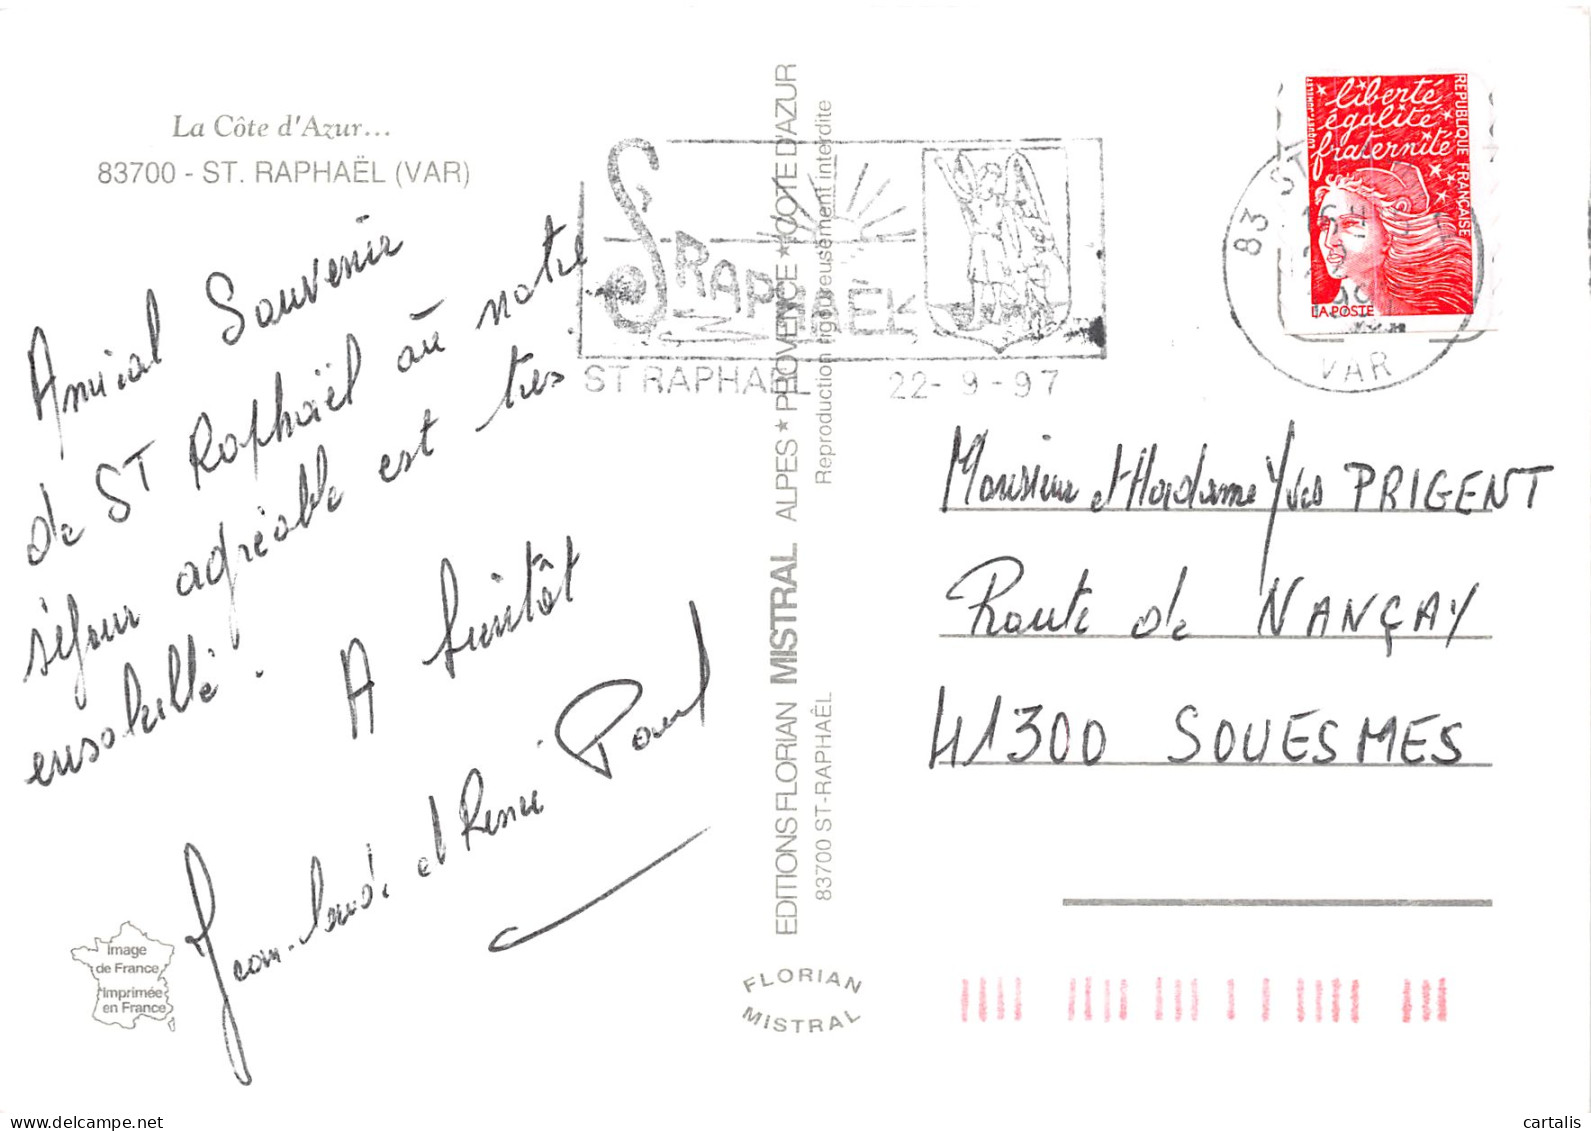 La Côte d'Azur...
83700 - ST. RAPHAËL (VAR)
Amical Souvenir
de ST Raphaël où notre
séjour agréable est très
ensoleillé. A bientôt
Jean-Claude et Renée Paul
Image
de France
Imprimée
en France
EDITIONS FLORIAN MISTRAL ALPES ★ PROVENCE ★ COTE D'AZUR
83700 ST-RAPHAËL
Reproduction rigoureusement interdite
FLORIAN
MISTRAL
ST RAPHAËL
ST RAPHAEL 22-9-97
83 ST
VAR
liberté
égalité
fraternité
REPUBLIQUE FRANÇAISE
LUQUET-JUMELET
LA POSTE
Monsieur et Madame Yves PRIGENT
Route de NANÇAY
41300 SOUESMES
delcampe.net
cartalis